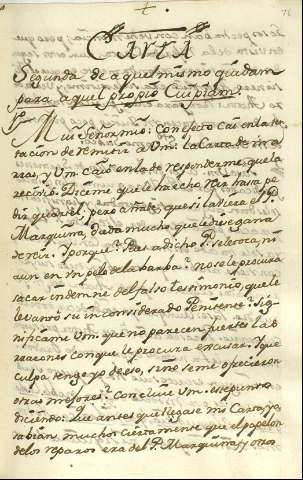 CARTA
Segunda de aquel mismo Quidam
para aquel propio Cuipiam.
Muy Señor mio: Con efecto cai en la ten
tacion de remitir a Vm. la Carta de mar
rras, y Vm. cayó en la de responderme, que la
recivió. Diceme que le ha hecho reir hasta pe
dir quartel; pero añade, que si la viera el P.
Marquina, dada mucho que le diese gana
de reir. Y porque? Pues a dicho P. se le toca, ni
aun en un pelo de la barba? no se le procura
sacar indemne del falso testimonio, que le
levantó su inconsiderado Penitente? Sig
nificame Vm. que no parecen fuertes las
razones con que le procura excusar. Y que
culpa tengo yo de eso, si no se me ofrecieron
otras mejores? Concluie Vm. este punto
diciendo: Que antes que llegase mi Carta, ya
sabian, muchos ciertamente que el papelon
de los reparos era del P. Marquina, y otros